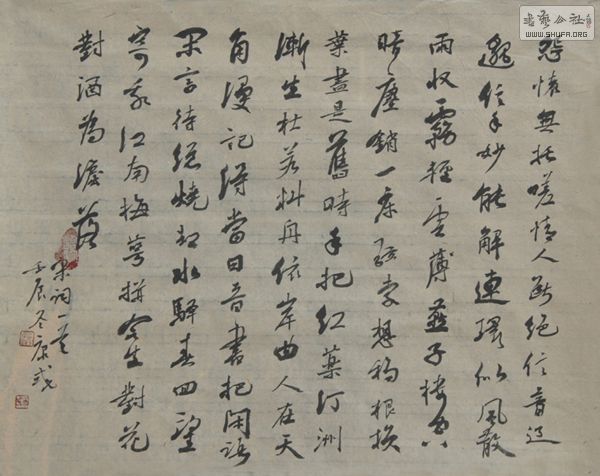 書藝公社
WWW.SHUFA.ORG
怨懷無托嗟情人斷絕信音遼
邈信手妙能解連環似風散
雨收霧輕雲薄燕子樓空
暗塵鎖一床弦索想移根換
葉盡是舊時手把紅藥汀洲
漸生杜若料舟依岸曲人在天
角漫記得當日音書把閑語
閑言待總燒却水驛春回望
寄我江南梅萼拚今生對花
對酒為淚落
宋詞一首
壬辰冬康